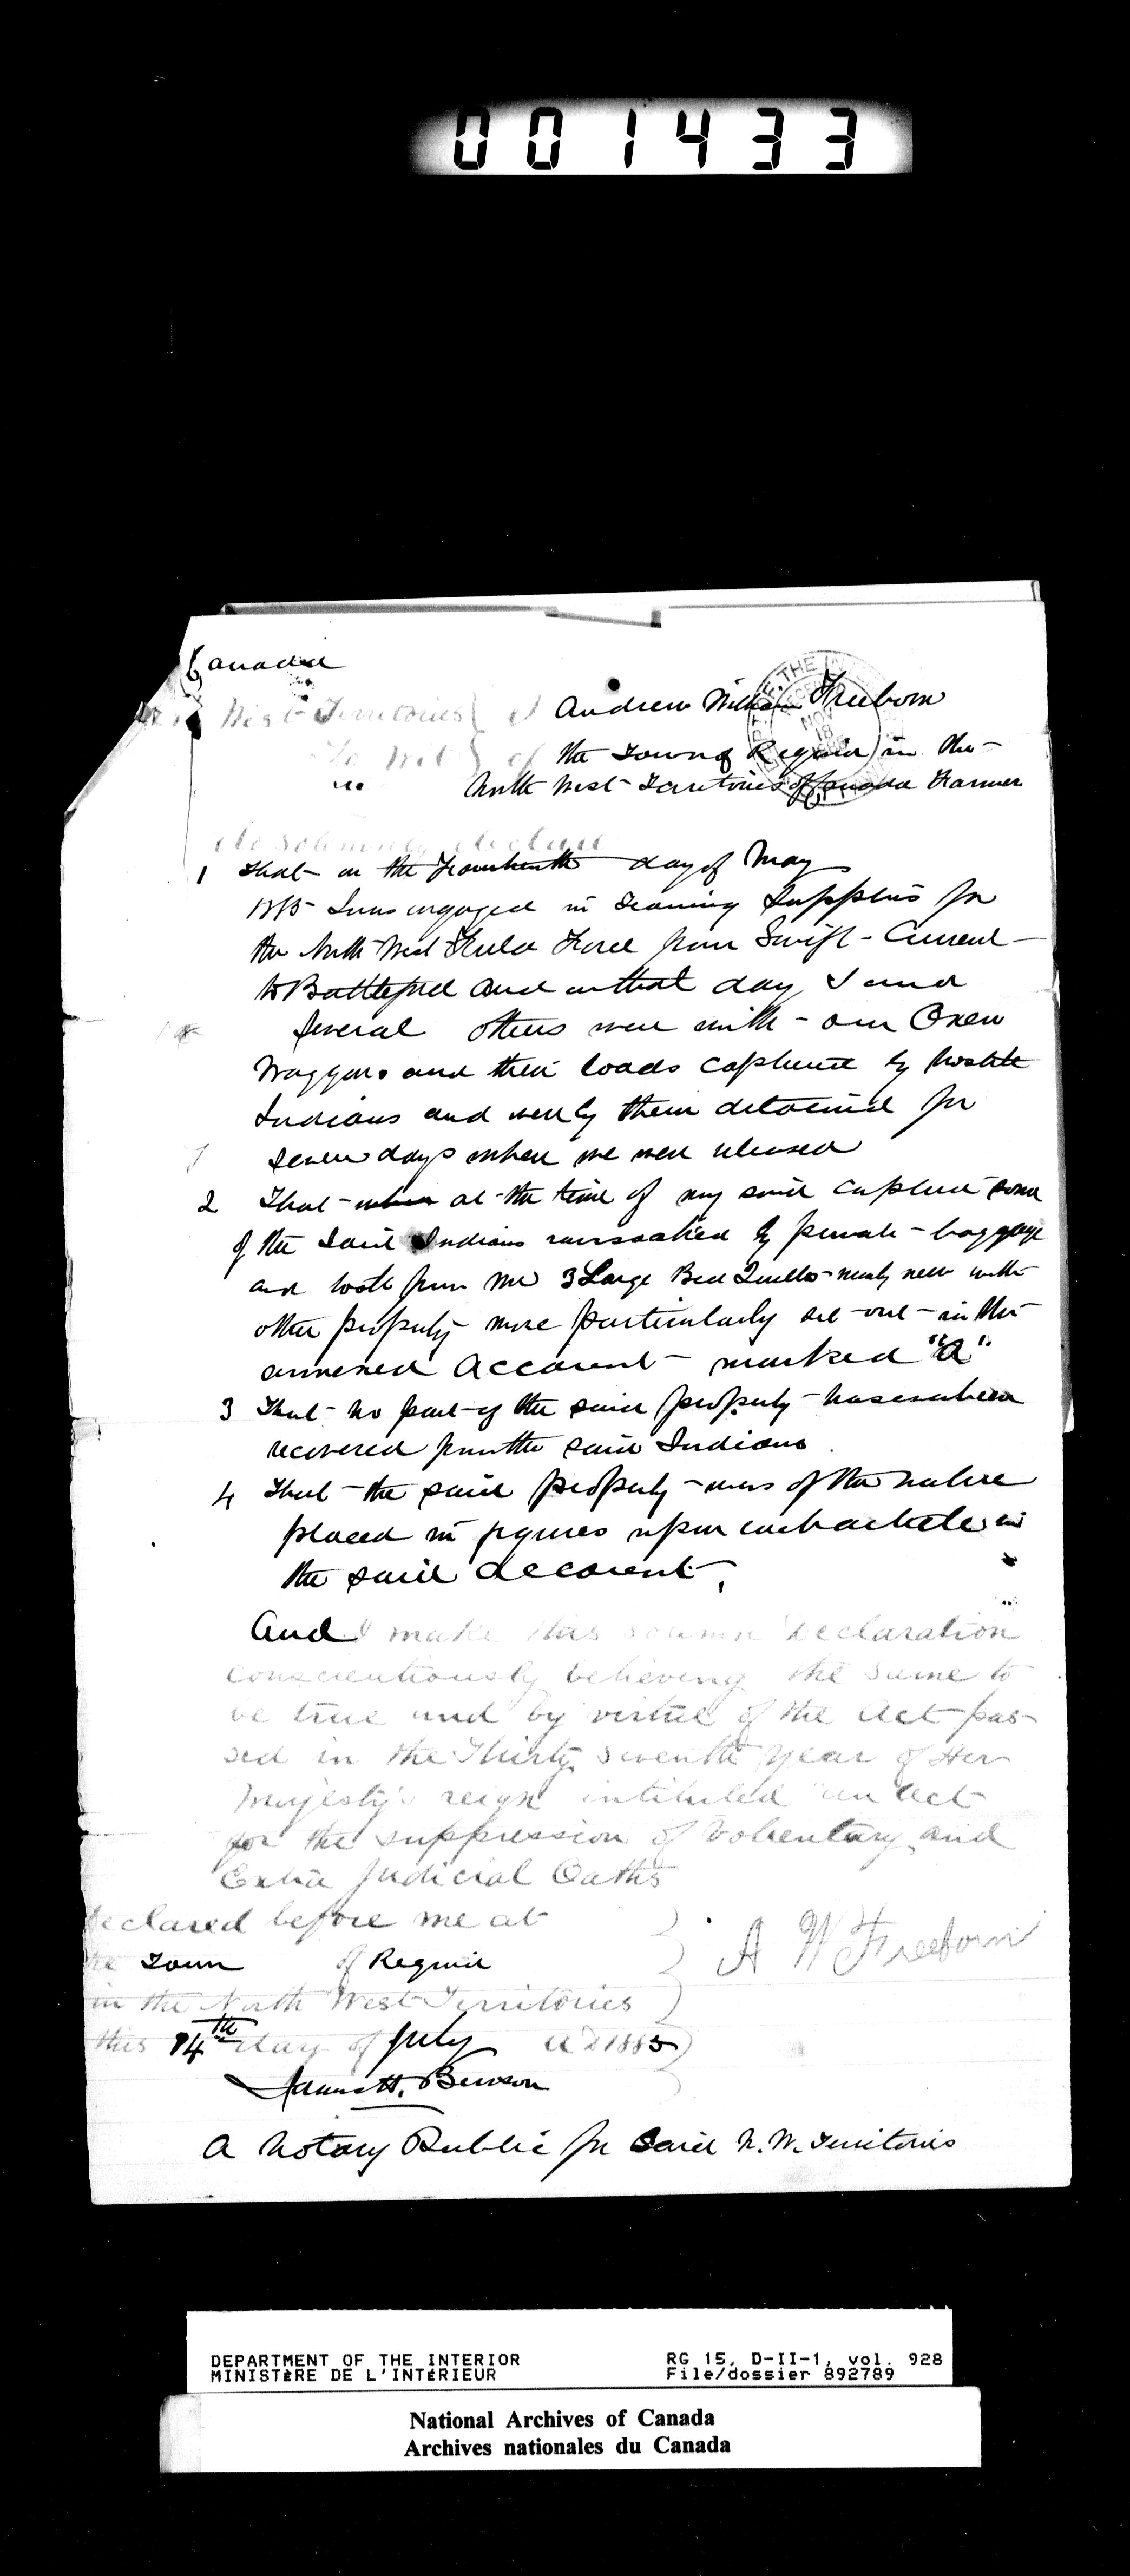 001433
Canada
North West Territories } I Andrew William Freeborn
To Wit } of the Town of Regina in the
North West Territories of Canada Farmer
do solemnly declare
1 That on the Fourteenth day of May
1885 I was engaged in Teaming Supplies for
the North West Field Force from Swift-Current
to Battleford and on that day I and
several others were with our Oxen
Waggons and their loads captured by hostile
Indians and were by them detained for
seven days when we were released
2 That when at the time of my said capture some
of the said Indians ransacked my private baggage
and took from me 3 Large Bed Quilts nearly new with
other property more particularly set out in the
annexed account marked "A"
3 That no part of the said property has ever been
recovered from the said Indians.
4 That the said property was of the value
placed in figures upon each article in
the said account.
And I make this solemn declaration
conscientiously believing the same to
be true and by virtue of the Act pas
sed in the Thirty Seventh year of Her
Majesty's reign intituled "an Act
for the suppression of Voluntary and
Extra Judicial Oaths
Declared before me at
the Town of Regina
in the North West Territories
this 14th day of July AD 1885
A W Freeborn
James H. Benson
A Notary Public for said N. W. Territories
DEPARTMENT OF THE INTERIOR
MINISTÈRE DE L'INTÉRIEUR
RG 15, D-II-1, vol. 928
File/dossier 892789
National Archives of Canada
Archives nationales du Canada